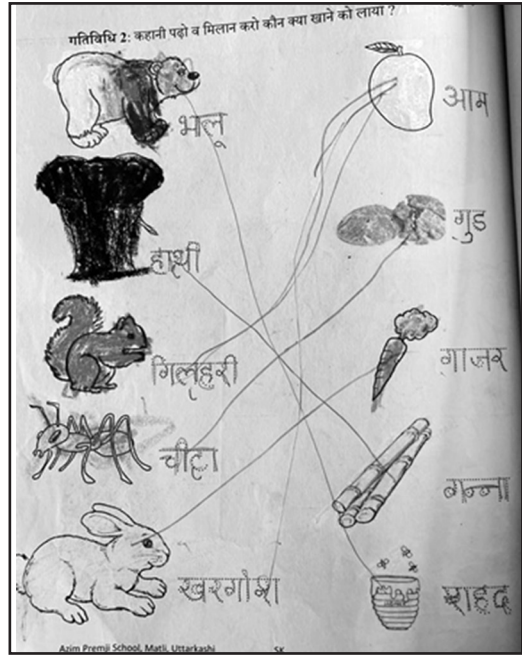 गतिविधि 2: कहानी पढ़ो व मिलान करो कौन क्या खाने को लाया ?
भालू
आम
हाथी
गुड
गिलहरी
गाजर
चींटा
गन्ना
खरगोश
शहद
Azim Premji School, Matli, Uttarkashi
SK